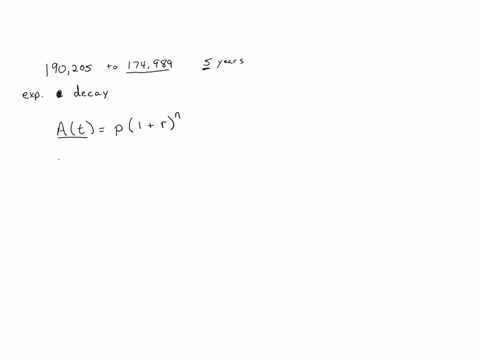 190,205 to 174,989 5 years
exp. decay
A(t) = p(1 + r)^n